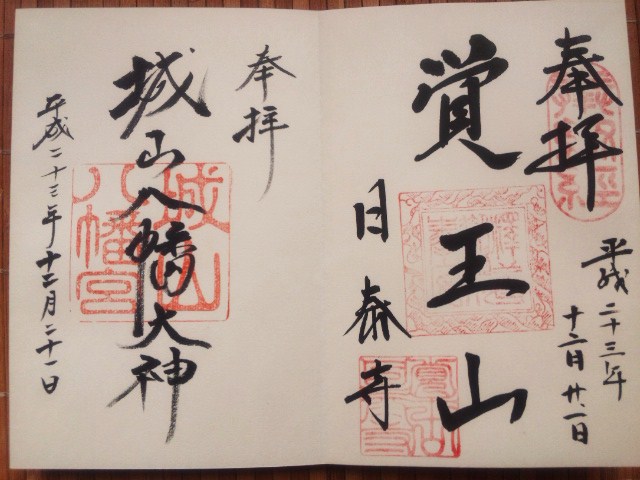 奉拝
平成二十三年
十二月廿一日
覚王山
日泰寺
奉拝
城山八幡大神
城山
八幡宮
平成二十三年十二月二十一日